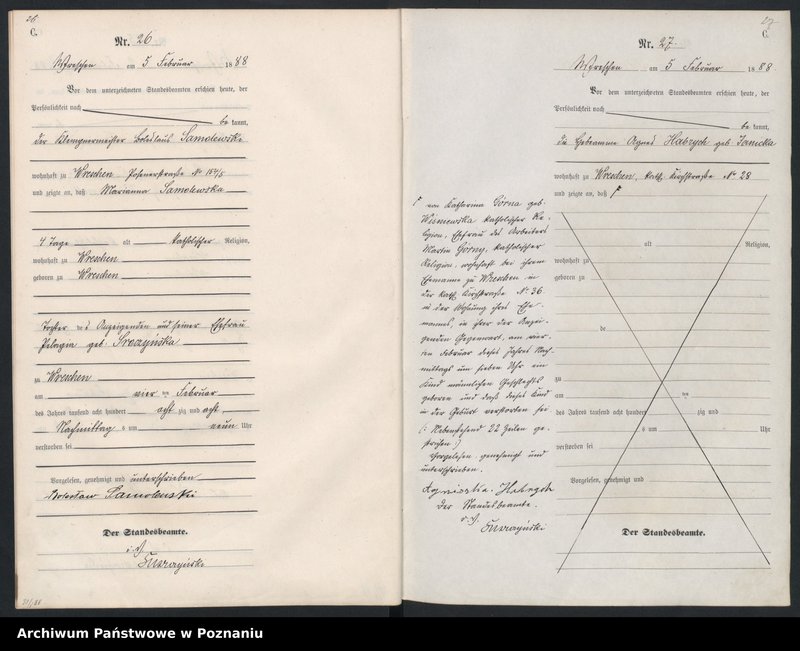 26.
C.
Nr. 26
Wreschen am 5 Februar 1888
Vor dem unterzeichneten Standesbeamten erschien heute, der
Persönlichkeit nach
be kannt,
der Klempnermeister Boleslaus Samolewski
wohnhaft zu Wreschen Posenerstraße No
und zeigte an, daß Marianna Samolewska
4 Tage alt katholischer Religion,
wohnhaft zu Wreschen
geboren zu Wreschen
Tochter des Anzeigenden und seiner Ehefrau
Pelagia geb. Sroczyńska
zu Wreschen
am vier ten Februar
des Jahres tausend acht hundert acht zig und acht
Nachmittag s um neun Uhr
verstorben sei
Vorgelesen, genehmigt und unterschrieben
Bolesław Samolewski
Der Standesbeamte.
i. V.
27
C.
Nr. 27.
Wreschen am 5 Februar 1888.
Vor dem unterzeichneten Standesbeamten erschien heute, der
Persönlichkeit nach
be kannt,
die Hebeamme Agnes Habrych geb.
wohnhaft zu Wreschen, kath. Kirchstraße No 28
und zeigte an, daß
von Katharina Górna geb.
Wisniewska katholischer Re-
ligion, Ehefrau des Arbeiters
Martin Gorny, katholischer
Religion, wohnhaft bei ihrem
Ehemanne zu Wreschen in
der kath. Kirchstraße No 36
in der Wohnung ihres Ehe-
mannes, in ihrer der Anzei-
genden Gegenwart, am vier-
ten Februar dieses Jahres Nach-
mittags um sieben Uhr ein
Kind männlichen Geschlechts
geboren und daß dieses Kind
in der Geburt verstorben sei
(: Nebenstehend 22 Zeilen ge-
strichen :)
Vorgelesen genehmigt und
unterschrieben.
Der Standesbeamte.
i. V.
alt Religion,
wohnhaft zu
geboren zu
de
zu
am ten
des Jahres tausend acht hundert zig und
s um Uhr
verstorben sei
Vorgelesen, genehmigt und
Der Standesbeamte.
Archiwum Państwowe w Poznaniu